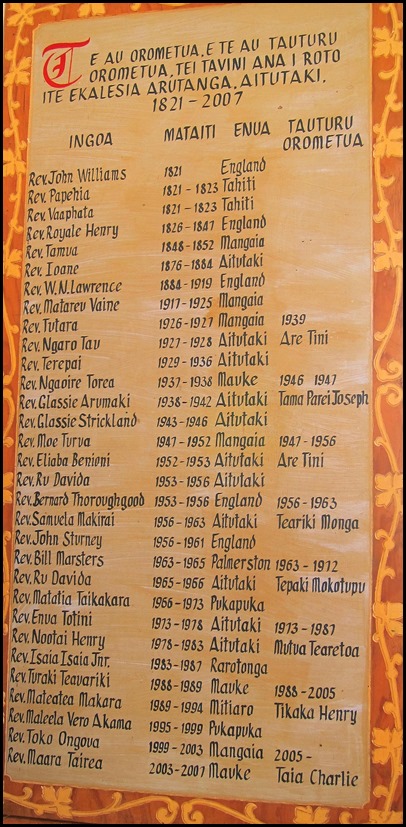 TE AU OROMETUA, E TE AU TAUTURU
OROMETUA, TEI TAVINI ANA I ROTO
ITE EKALESIA ARUTANGA, AITUTAKI.
1821 - 2007
INGOA MATAITI ENUA TAUTURU
OROMETUA
Rev. John Williams 1821 England
Rev. Papehia 1821 - 1823 Tahiti
Rev. Vaaphata 1821 - 1823 Tahiti
Rev. Royale Henry 1826 - 1847 England
Rev. Tamua 1848 - 1852 Mangaia
Rev. Ioane 1876 - 1884 Aitutaki
Rev. W.N. Lawrence 1884 - 1919 England
Rev. Matareu Vaine 1917 - 1925 Mangaia
Rev. Tutara 1926 - 1927 Mangaia 1939
Rev. Ngaro Tau 1927 - 1928 Aitutaki Are Tini
Rev. Terepai 1929 - 1936 Aitutaki
Rev. Ngaoire Torea 1937 - 1938 Mauke 1946 1947
Rev. Glassie Arumaki 1938 - 1942 Aitutaki Tama Parei Joseph
Rev. Glassie Strickland 1943 - 1946 Aitutaki
Rev. Moe Turua 1947 - 1952 Mangaia 1947 - 1956
Rev. Eliaba Benioni 1952 - 1953 Aitutaki Are Tini
Rev. Ru Davida 1953 - 1956 Aitutaki
Rev. Bernard Thoroughgood 1953 - 1956 England 1956 - 1963
Rev. Samuela Makirai 1956 - 1963 Aitutaki Teariki Monga
Rev. John Sturney 1956 - 1961 England
Rev. Bill Marsters 1963 - 1965 Palmerston 1963 - 1972
Rev. Ru Davida 1965 - 1966 Aitutaki Tepaki Mokotupu
Rev. Matatia Taikakara 1966 - 1973 Pukapuka
Rev. Enua Totini 1973 - 1978 Aitutaki 1973 - 1987
Rev. Nootai Henry 1978 - 1983 Aitutaki Mutua Tearetoa
Rev. Isaia Isaia Jnr. 1983 - 1987 Rarotonga
Rev. Turaki Teauariki 1988 - 1989 Mauke 1988 - 2005
Rev. Mateatea Makara 1989 - 1994 Mitiaro Tikaka Henry
Rev. Maleela Vero Akama 1995 - 1999 Pukapuka
Rev. Toko Ongoua 1999 - 2003 Mangaia 2005 -
Rev. Maara Tairea 2003 - 2007 Mauke Taia Charlie